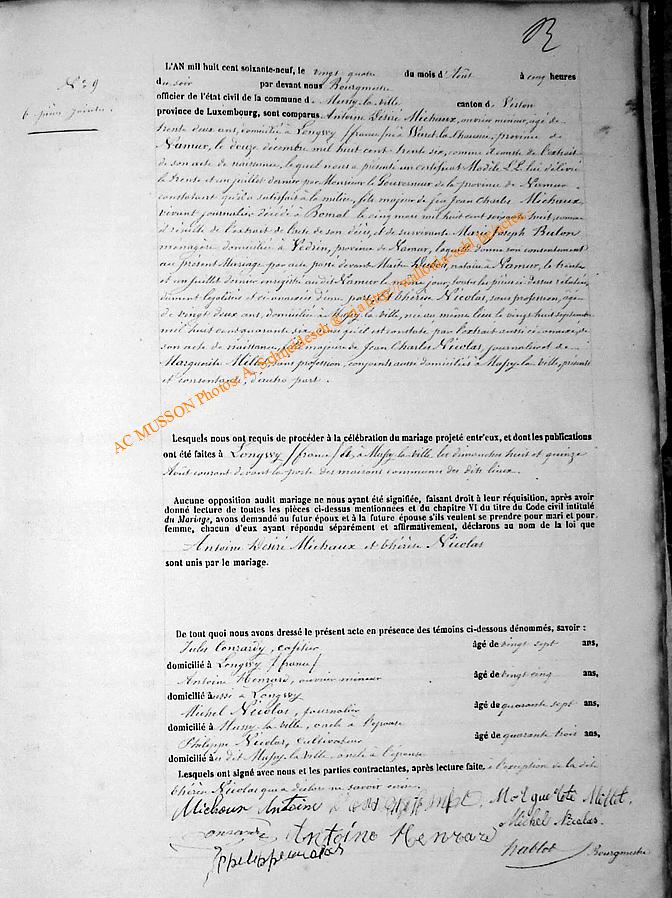 N° 9
6 pièces jointes.
L'AN mil huit cent soixante-neuf, le vingt quatre du mois d'Août à cinq heures
du soir par devant nous Bourgmestre
officier de l'état civil de la commune de Mussy-la-Ville canton de Virton
province de Luxembourg, sont comparus Antoine Désiré Michaux, ouvrier mineur, âgé de
trente deux ans, domicilié à Longwy (france) né à province de
Namur, le douze décembre mil huit cent trente six, comme il conste de l'extrait
de son acte de naissance, lequel nous a présenté un certificat Modèle LL lui délivré
le trente et un juillet dernier par Monsieur le Gouverneur de la province de Namur
constatant qu'il a satisfait à la milice, fils majeur de feu Jean Charles Michaux
vivant journalier décédé à Bomal le cinq mars mil huit cent soixante huit, comme
il résulte de l'extrait de l'acte de son décès, et de survivante Marie Joseph Bulon
ménagère domiciliée à Vedrin, province de Namur, laquelle donne son consentement
au présent Mariage par acte passé devant Maître notaire à Namur, le trente
et un juillet dernier enregistré au dit Namur le même jour, toutes les pièces ci-dessus relatées
dument légalisées et ci-annexées d'une part; et Thérèse Nicolas, sans profession, âgée
de vingt deux ans, domiciliée à Mussy-la-Ville, née au même lieu le vingt huit septembre
mil huit cent quarante six, ainsi qu'il est constaté par l'extrait aussi ci-annexé de
son acte de naissance, fille majeure de Jean Charles Nicolas, journalier et de
Marguerite Millet, sans profession, conjoints aussi domiciliés à Mussy-la-Ville, présents
et consentants, d'autre part.
AC MUSSON Photos: A. Schneidesch
Lesquels nous ont requis de procéder à la célébration du mariage projeté entr'eux, et dont les publications
ont été faites à Longwy (france) et à Mussy-la-Ville, les dimanches huit et quinze
Août courant devant la porte des maisons communes des dits lieux.
Aucune opposition audit mariage ne nous ayant été signifiée, faisant droit à leur réquisition, après avoir
donné lecture de toutes les pièces ci-dessus mentionnées et du chapitre VI du titre du Code civil intitulé
du Mariage, avons demandé au futur époux et à la future épouse s'ils veulent se prendre pour mari et pour
femme, chacun d'eux ayant répondu séparément et affirmativement, déclarons au nom de la loi que
Antoine Désiré Michaux et Thérèse Nicolas
sont unis par le mariage.
De tout quoi nous avons dressé le présent acte en présence des témoins ci-dessous dénommés, savoir :
Jules Conrardy, âgé de vingt sept ans,
domicilié à Longwy (france)
Antoine Henrard, ouvrier mineur âgé de vingt cinq ans,
domicilié aussi à Longwy
Michel Nicolas, journalier âgé de quarante sept ans,
domicilié à Mussy-la-Ville, oncle à l'épouse
Philippe Nicolas, cultivateur âgé de quarante trois ans,
domicilié au dit Mussy-la-Ville, oncle à l'épouse
Lesquels ont signé avec nous et les parties contractantes, après lecture faite, à l'exception de la dite
Thérèse Nicolas qui a déclaré ne savoir écrire.
Michaux Antoin Margueritte Millet.
Antoine Henrard Michel Nicolas
Bourgmestre